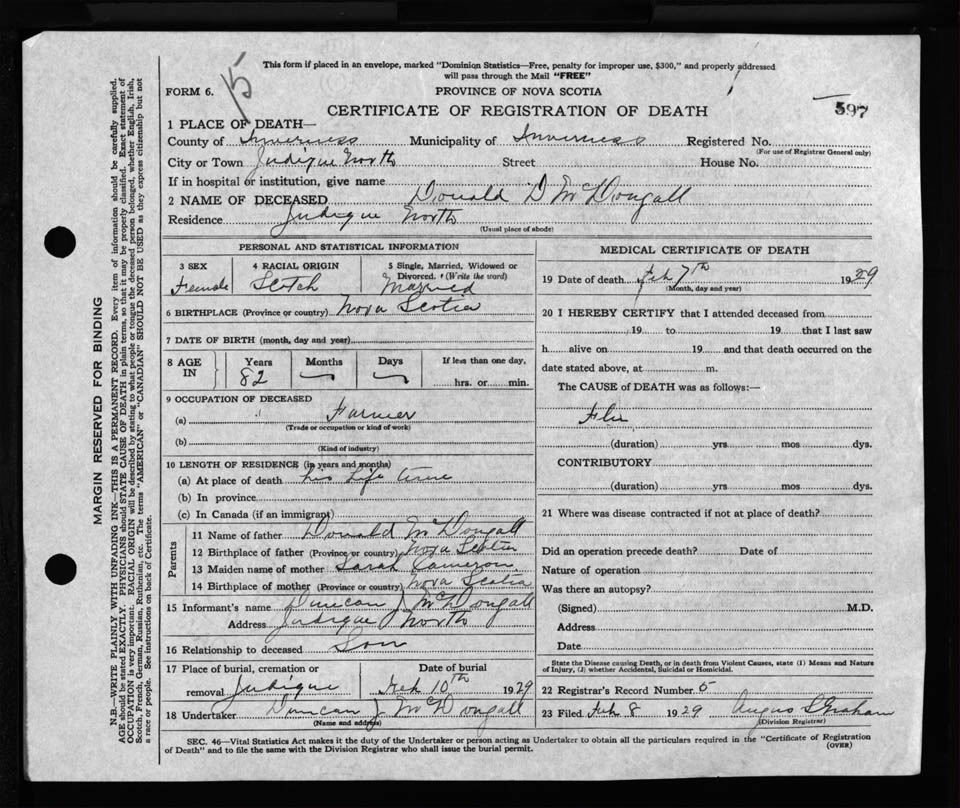 This form if placed in an envelope, marked "Dominion Statistics—Free, penalty for improper use, $300," and properly addressed
will pass through the Mail "FREE"
15
FORM 6.
PROVINCE OF NOVA SCOTIA
CERTIFICATE OF REGISTRATION OF DEATH
597
1 PLACE OF DEATH—
County of Inverness Municipality of Inverness Registered No.
(For use of Registrar General only)
City or Town Judique North Street House No.
If in hospital or institution, give name
2 NAME OF DECEASED Donald D McDougall
Residence Judique North
(Usual place of abode)
PERSONAL AND STATISTICAL INFORMATION
3 SEX 4 RACIAL ORIGIN 5 Single, Married, Widowed or
Divorced. (Write the word)
Female Scotch Married
6 BIRTHPLACE (Province or country) Nova Scotia
7 DATE OF BIRTH (month, day and year)
8 AGE IN Years Months Days If less than one day,
82 hrs. or min.
9 OCCUPATION OF DECEASED
(a) Farmer
(Trade or occupation or kind of work)
(b)
(Kind of industry)
10 LENGTH OF RESIDENCE (in years and months)
(a) At place of death his Life time
(b) In province
(c) In Canada (if an immigrant)
Parents
11 Name of father Donald McDougall
12 Birthplace of father (Province or country) Nova Scotia
13 Maiden name of mother Sarah Cameron
14 Birthplace of mother (Province or country) Nova Scotia
15 Informant's name Duncan J McDougall
Address Judique North
16 Relationship to deceased Son
17 Place of burial, cremation or Date of burial
removal Judique Feb 10th 1929
18 Undertaker Duncan J McDougall
(Name and address)
MEDICAL CERTIFICATE OF DEATH
19 Date of death Feb 7th 1929
(Month, day and year)
20 I HEREBY CERTIFY that I attended deceased from
19 to 19 that I last saw
h alive on 19 and that death occurred on the
date stated above, at m.
The CAUSE of DEATH was as follows:—
Flu
(duration) yrs mos dys.
CONTRIBUTORY
(duration) yrs mos dys.
21 Where was disease contracted if not at place of death?
Did an operation precede death? Date of
Nature of operation
Was there an autopsy?
(Signed) M.D.
Address
Date
State the Disease causing Death, or in death from Violent Causes, state (1) Means and Nature
of Injury, (2) whether Accidental, Suicidal or Homicidal.
22 Registrar's Record Number 5
23 Filed Feb 8 1929 Angus Graham
(Division Registrar)
SEC. 46—Vital Statistics Act makes it the duty of the Undertaker or person acting as Undertaker to obtain all the particulars required in the "Certificate of Registration
of Death" and to file the same with the Division Registrar who shall issue the burial permit.
(OVER)
MARGIN RESERVED FOR BINDING
N.B.—WRITE PLAINLY WITH UNFADING INK—THIS IS A PERMANENT RECORD. Every item of information should be carefully supplied.
AGE should be stated EXACTLY. PHYSICIANS should STATE CAUSE OF DEATH in plain terms, so that it may be properly classified. Exact statement of
OCCUPATION is very important. RACIAL ORIGIN will be described by stating to what people or tongue the deceased person belonged, whether English, Irish,
Scotch, French, German, Russian, Ruthenian, etc. The terms "AMERICAN" or "CANADIAN" SHOULD NOT BE USED as they express citizenship but not
a race or people. See instructions on back of Certificate.